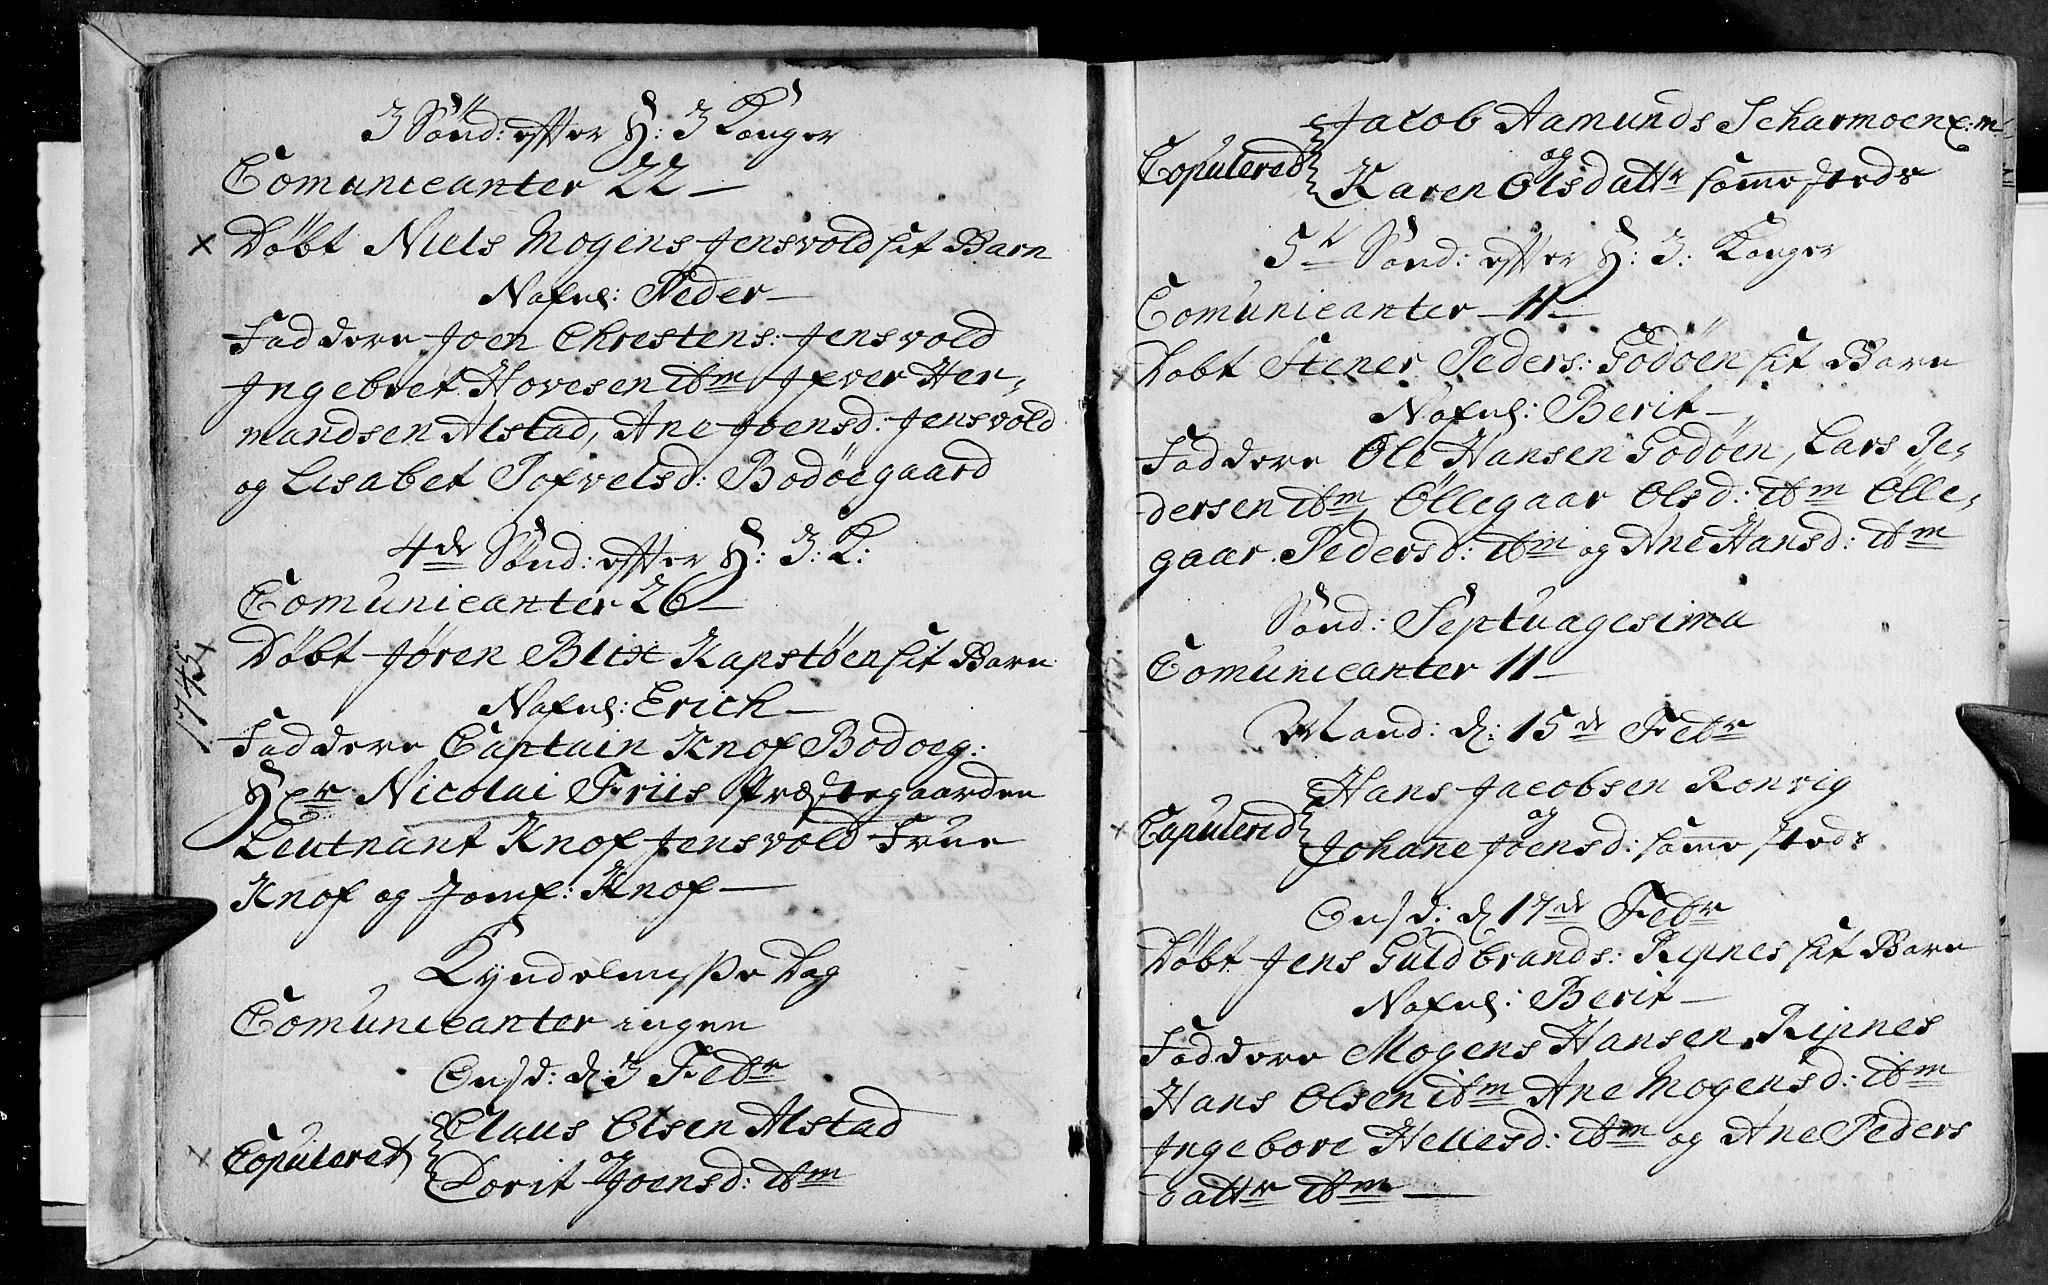 3 Sønd: effter H: 3 Konger
Comunicanter 22 —
x Døbt Niels Mogens Jensvold sit Barn
Nafnl: Peder —
Faddere Joen Chrestens: Jensvold
Ingebret Hovesen ibm Ifver Her,
mandsen Alstad, Ane Joensd: Jensvold
og Lisabet Pofvelsd: Bodøegaard
4de Sønd: effter H: 3: K:
Comunicanter 26 —
1745
x Døbt Jøren Blix Kapstøen sit Barn
Nafnl: Erich —
Faddere Captain Knof Bodoeg:
Hr Nicolai Friis Præstegaarden
Leutnant Knof Jensvold Frue
Knof og Jomf: Knof —
Kyndelmisse Dag
Comunicanter ingen
Onsd: d: 3 Febr
Claus Olsen Alstad
x Copuleret og
Dorit Joensd: ibm
Jacob Aamunds Scharmoen
Copulered og
Karen Olsdattr samme steds
5te Sønd: effter H: 3: Konger
Comunicanter 11 —
x Døbt Stener Peders: Godøen sit Barn
Nafnl: Berit —
Faddere Ole Hansen Godøen, Lars Pe,
dersen ibm, Øllegaar Olsd: ibm Ølle,
gaar Pedersd: ibm og Ane Hansd: ibm
Sønd: Septuagesima
Comunicanter 11 —
Mand: d: 15de Febr
Hans Jacobsen Ronvig
x Copulered og
Johane Joensd: samme steds
Onsd: d 17de Febr
Døbt Jens Guldbrands: Rijpnes sit Barn
Nafnl: Berit —
Faddere Mogens Hansen Rijpnes
Hans Olsen ibm Ane Mogensd: ibm
Ingebore Hellesd: ibm og Ane Peders
dattr ibm —